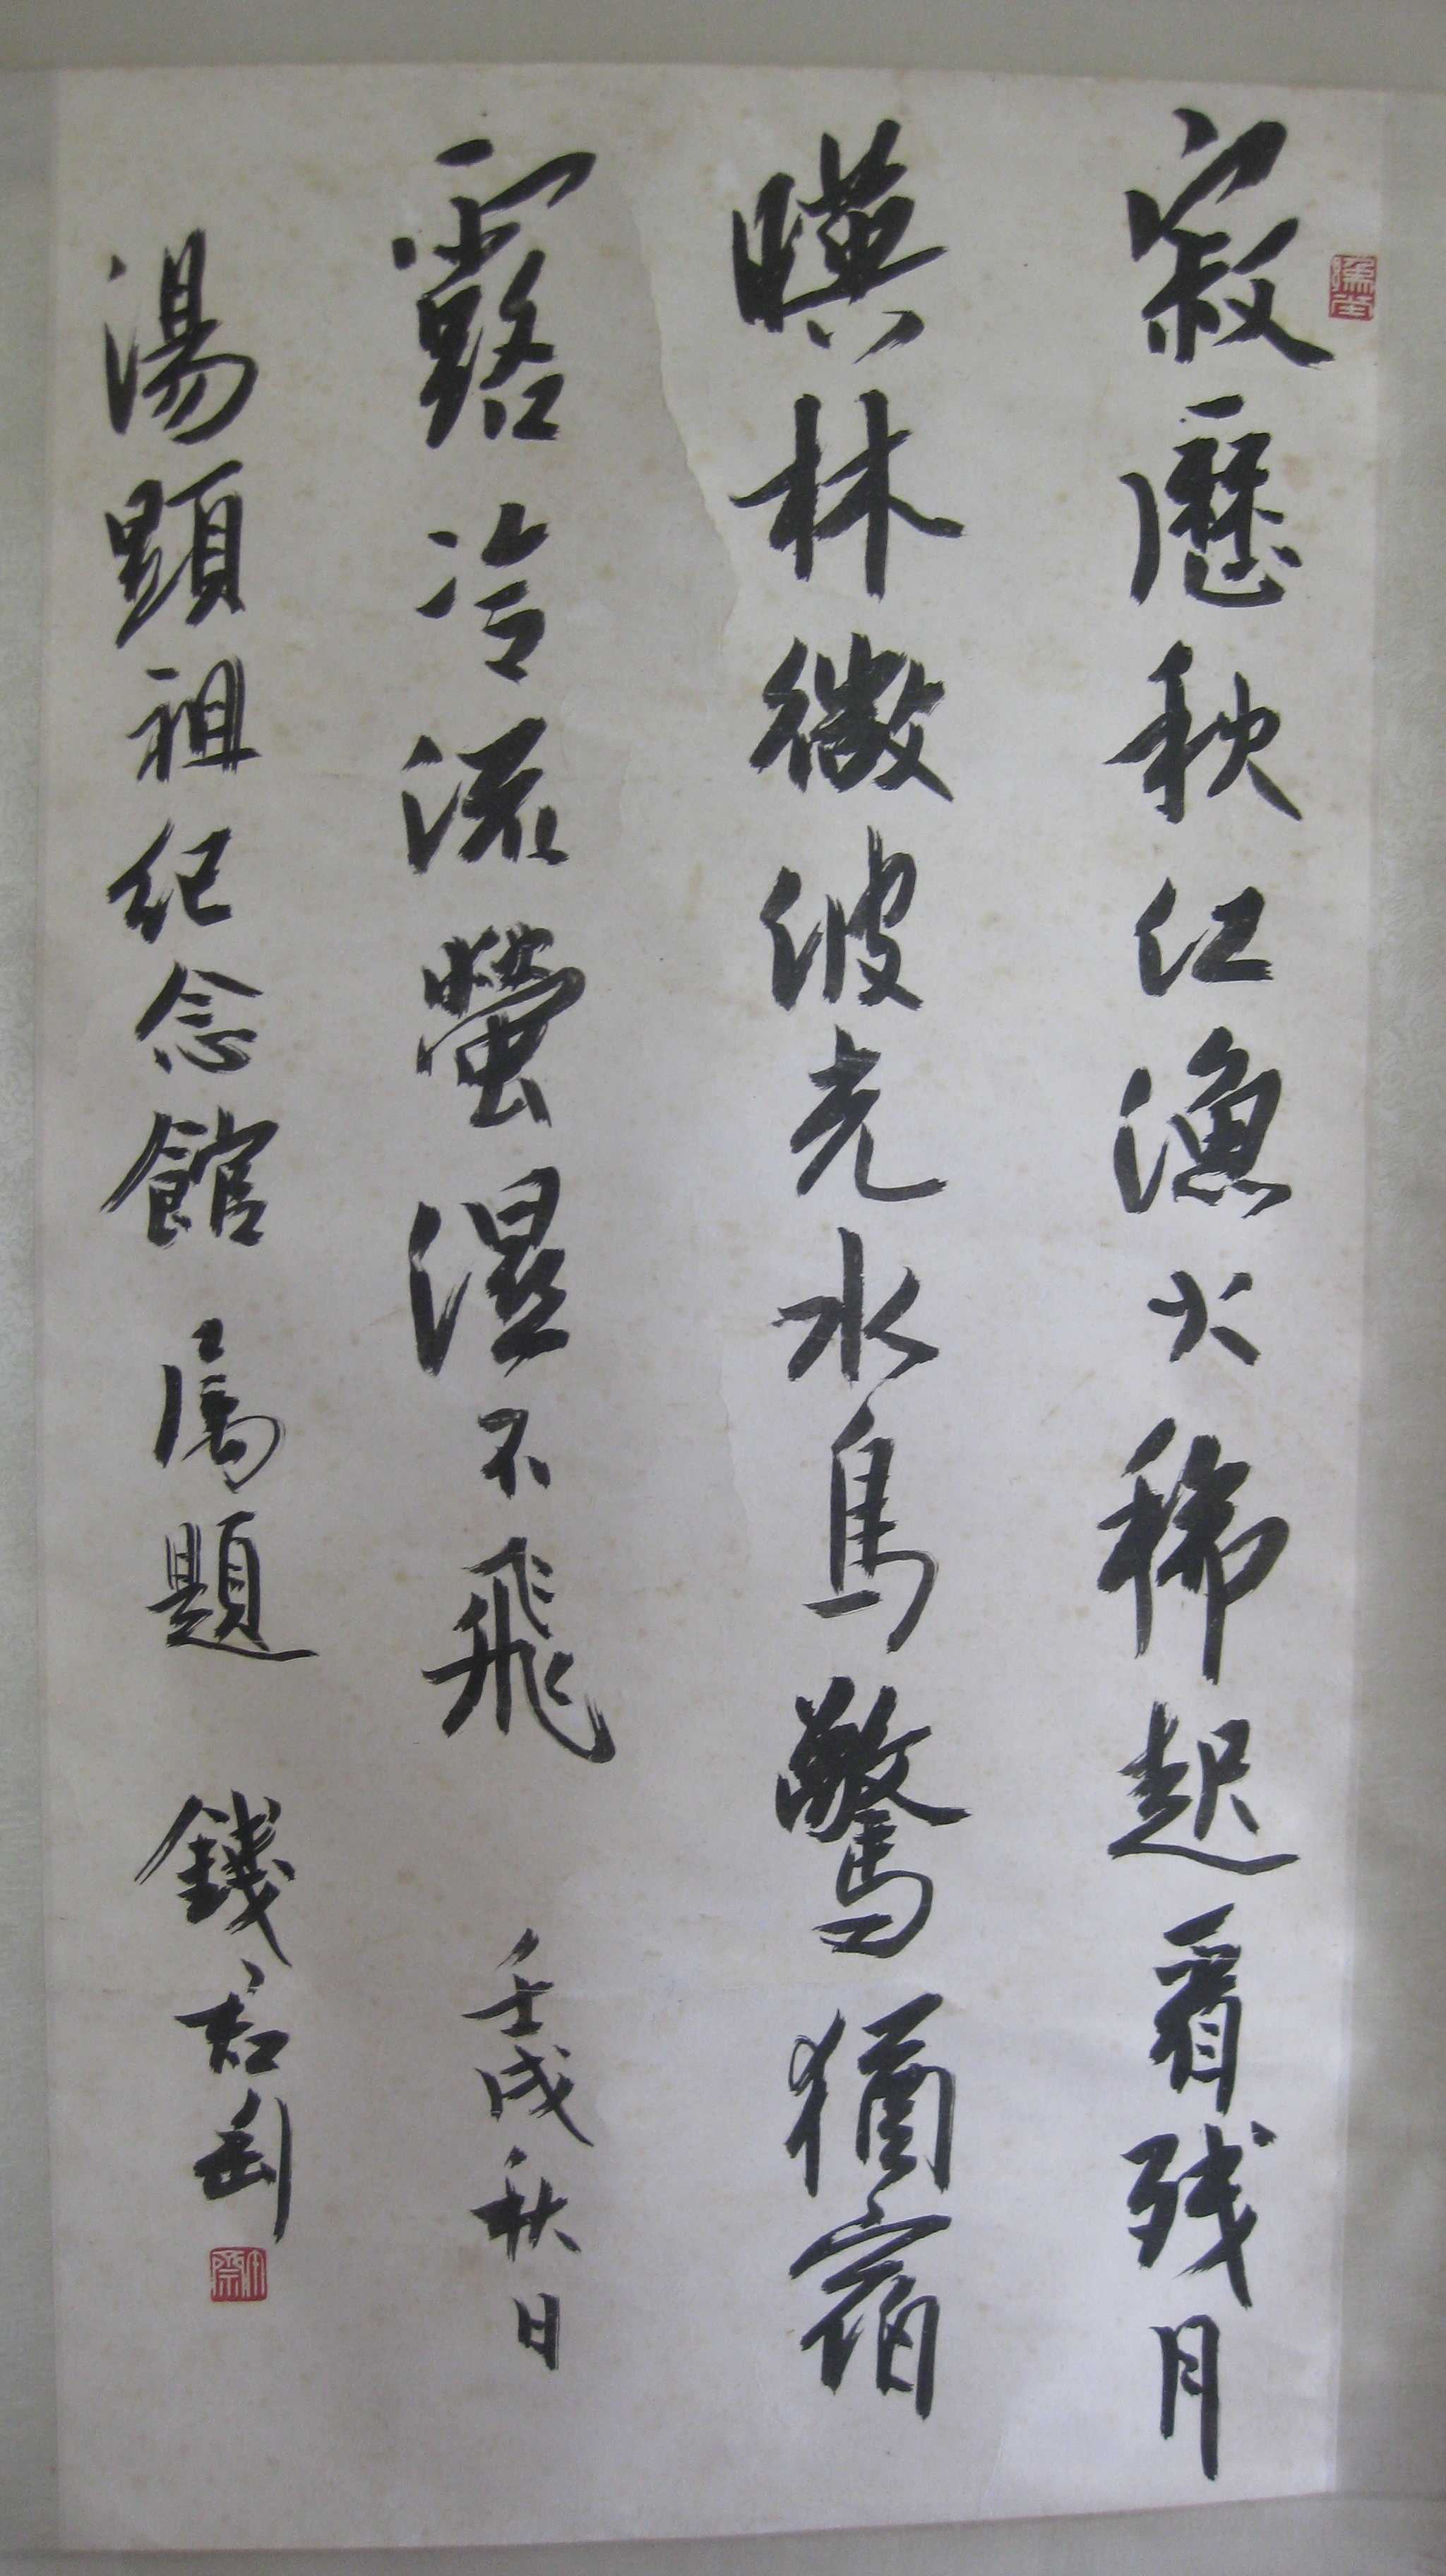 寂歷秋江漁火稀起看殘月
暎林微波光水鳥驚猶宿
露冷流螢濕不飛 壬戌秋日
湯顯祖紀念館屬題 錢君匋